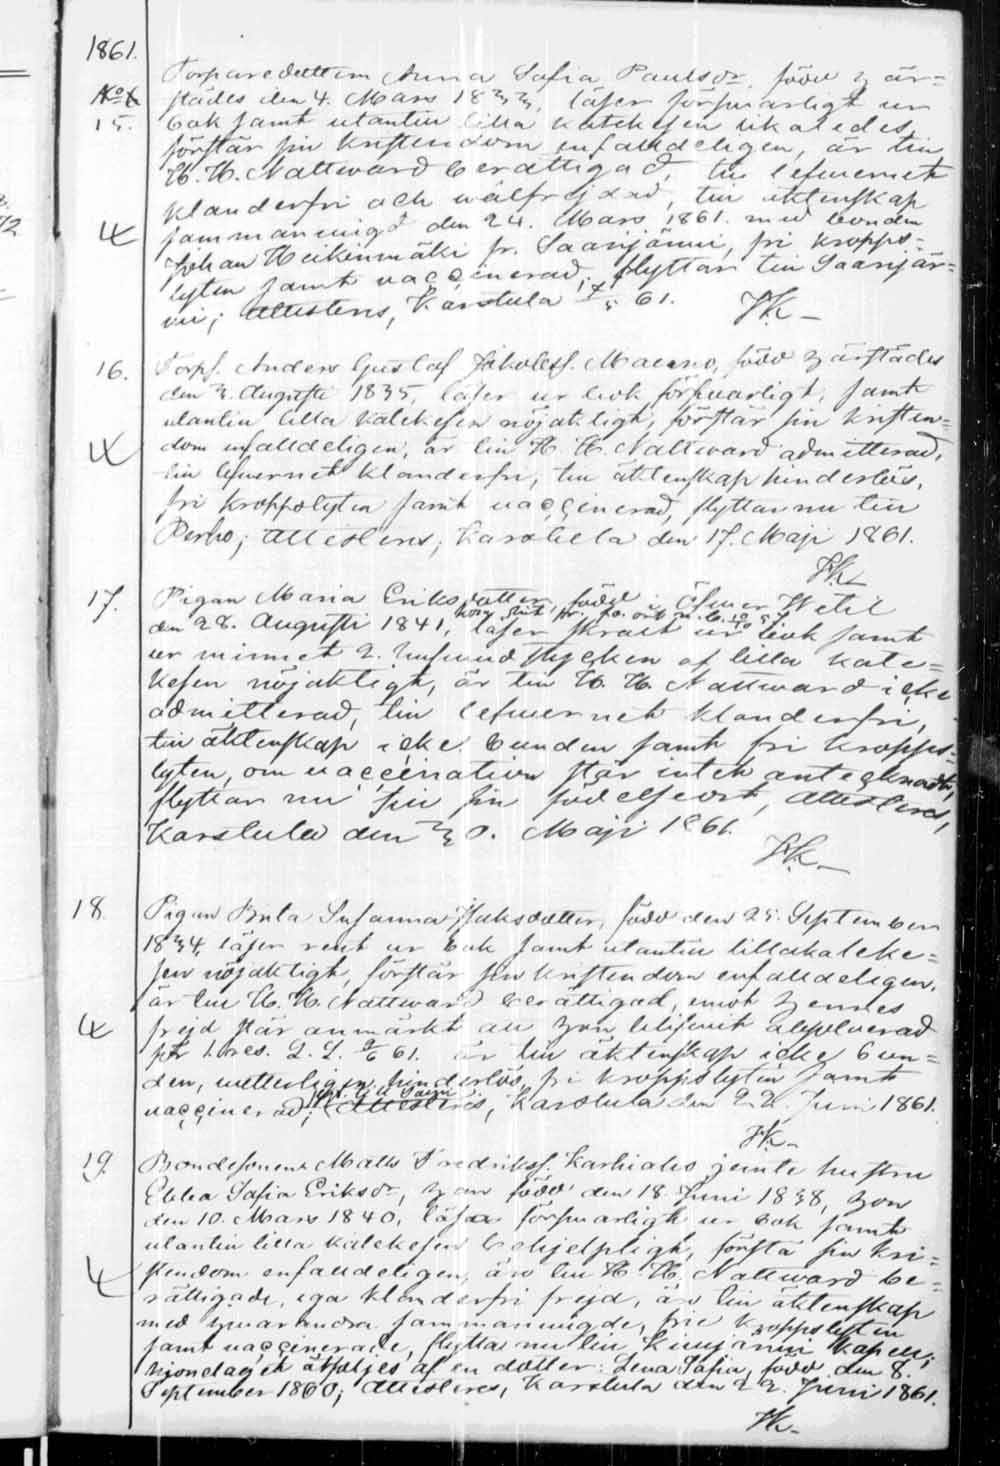 1861.
Torparedottern Anna Sofia Paulsdr, född här=
No 6
städes den 4. Mars 1833, läser försvarligt ur
15.
bok samt utantill lilla katekesen likaledes,
förstår sin kristendom enfalldeligen, är till
H. H. Nattward berättigad, till lefwernet
klanderfri och wälfrejdad, till äktenskap
sammanwigd den 24. Mars 1861. med bonden
Johan Heikinmäki fr. Saarijärwi, fri kropps=
lyten samt vaccinerad; flyttar till Saarijär=
wi; attesteras, Karstula 61. HK
16.
Torps. Anders Gustaf Jakobss. född härstädes
den 3. Augusti 1835, läser ur bok försvarligt, samt
utantill lilla katekesen nöjaktligt, förstår sin kristen=
dom enfalldeligen, är till H. H. Nattward admitterad,
till lefwernet klanderfri, till äktenskap hinderlös,
fri kroppslyten samt vaccinerad, flyttar nu till
Perho; attesteras, Karstula den 17. Maji 1861.
HK
17.
Pigan Maria Eriksdotter, född i Öfwer Wetil
den 28. Augusti 1841, läser svart ur bok samt
ur minnet 2. hufwudstycken af lilla kate=
kesen nöjaktligt, är till H. H. Nattward icke
admitterad, till lefwernet klanderfri,
till äktenskap icke bunden samt fri kropps=
lyten, om vaccination står intet antecknadt,
flyttar nu till sin födelseort, attesteras,
Karstula den 30. Maji 1861.
HK
18.
Pigan Brita Susanna Isaksdotter, född den 25. September
1834, läser rent ur bok samt utantill lilla kateke=
sen nöjaktligt, förstår sin kristendom enfalldeligen,
är till H. H. Nattward berättigad, emot hennes
frejd står anmärkt att hon blifwit absolverad
för 1. res. L. L. 9/6 61. är till äktenskap icke bun=
den, wetterligen hinderlös, fri kroppslyten samt
vaccinerad; attesteras, Karstula den 22. Juni 1861.
HK
19.
Bondesonen Matts Fredrikss. Karhiaho jemte hustru
Ebba Sofia Eriksdr, han född den 18. Juni 1838, hon
den 10. Mars 1840, läsa försvarligt ur bok samt
utantill lilla katekesen behjelpligt, förstå sin kri=
stendom enfalldeligen, äro till H. H. Nattward be=
rättigade, ega klanderfri frejd, äro till äktenskap
med hwarandra sammanwigde, frie kroppslyten
samt vaccinerade, flytta nu till Kimjärwi kapell;
hjonelaget åtföljes af en dotter: Lena Sofia, född den 8.
September 1860; attesteras, Karstula den 22. Juni 1861.
HK